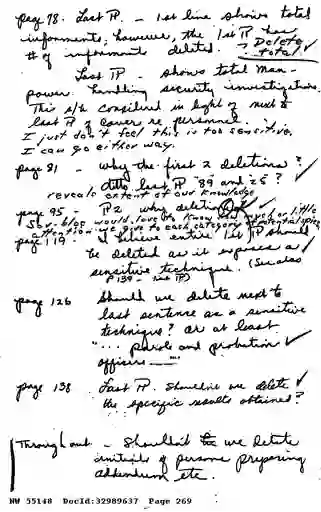 page 78. Last ¶. - 1st line shows total
informants; however, the 1st ¶ has
# of informants deleted. ? Delete total ✓
Last ¶ - shows total man-
power handling security investigations.
This s/b considered in light of next to
last ¶ of cover re personnel. ✓
I just don't feel this is too sensitive,
I can go either way.
page 81 - why the first 2 deletions? ✓
ditto last ¶ "39 and 25" ?
reveals extent of our knowledge
page 95 - P2 why deletion
Sov-bloc would love to know how much or little
attention we give to each category of potential spies
page 119 - I believe entire 1st ¶ should ✓
be deleted as it exposes a
sensitive technique. (See also
P139 - ¶)
page 126 Should we delete next to
last sentence as a sensitive
technique? or at least
"... parole and probation ✓
officers ___"
page 138 Last ¶. Shouldn't we delete ✓
the specific results obtained?
Throughout - Shouldn't we delete
initials of persons preparing
addendum etc.
NW 55148 DocId:32989637 Page 269